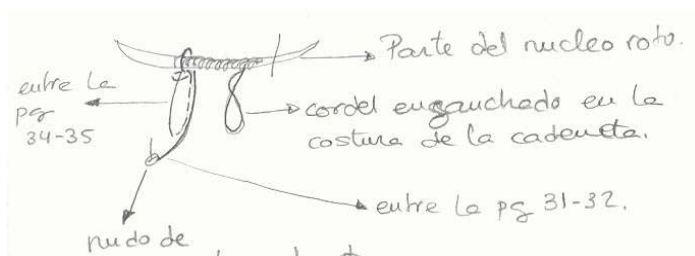 Parte del nucleo roto.
entre la
pg
34-35
cordel enganchado en la
costura de la cadeneta.
entre la pg 31-32.
nudo de